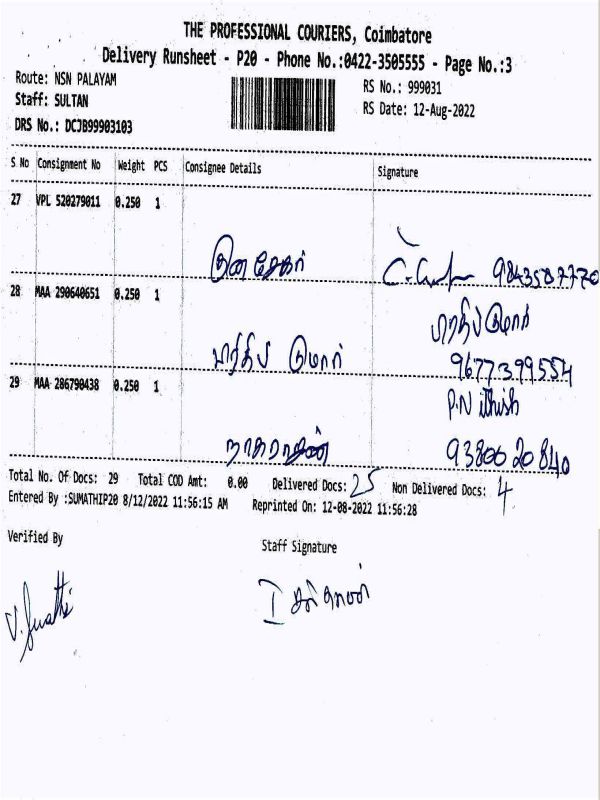 THE PROFESSIONAL COURIERS, Coimbatore
Delivery Runsheet - P20 - Phone No.:0422-3505555 - Page No.:3
Route: NSN PALAYAM
Staff: SULTAN
DRS No.: DCJB99903103
RS No.: 999031
RS Date: 12-Aug-2022
S No Consignment No Weight PCS Consignee Details Signature
27 VPL 520279011 0.250 1
குணசேகர் 9843587770
28 MAA 290640651 0.250 1
பிரதிப்குமார்
பிரதிப் குமார் 9677399554
29 MAA 286790438 0.250 1
P.Nithish
நாகராஜன் 9380620840
Total No. Of Docs: 29 Total COD Amt: 0.00 Delivered Docs: 25 Non Delivered Docs: 4
Entered By :SUMATHIP20 8/12/2022 11:56:15 AM Reprinted On: 12-08-2022 11:56:28
Verified By
Staff Signature
சுல்தான்